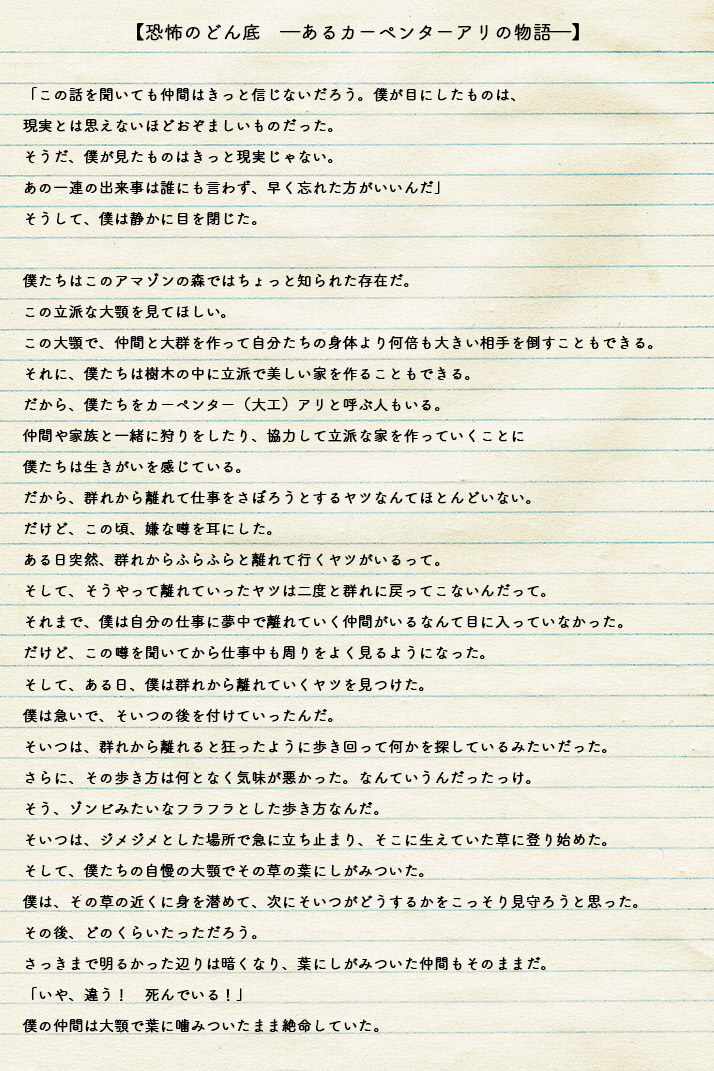 【恐怖のどん底　―あるカーペンターアリの物語―】
「この話を聞いても仲間はきっと信じないだろう。僕が目にしたものは、
現実とは思えないほどおぞましいものだった。
そうだ、僕が見たものはきっと現実じゃない。
あの一連の出来事は誰にも言わず、早く忘れた方がいいんだ」
そうして、僕は静かに目を閉じた。
僕たちはこのアマゾンの森ではちょっと知られた存在だ。
この立派な大顎を見てほしい。
この大顎で、仲間と大群を作って自分たちの身体より何倍も大きい相手を倒すこともできる。
それに、僕たちは樹木の中に立派で美しい家を作ることもできる。
だから、僕たちをカーペンター（大工）アリと呼ぶ人もいる。
仲間や家族と一緒に狩りをしたり、協力して立派な家を作っていくことに
僕たちは生きがいを感じている。
だから、群れから離れて仕事をさぼろうとするヤツなんてほとんどいない。
だけど、この頃、嫌な噂を耳にした。
ある日突然、群れからふらふらと離れて行くヤツがいるって。
そして、そうやって離れていったヤツは二度と群れに戻ってこないんだって。
それまで、僕は自分の仕事に夢中で離れていく仲間がいるなんて目に入っていなかった。
だけど、この噂を聞いてから仕事中も周りをよく見るようになった。
そして、ある日、僕は群れから離れていくヤツを見つけた。
僕は急いで、そいつの後を付けていったんだ。
そいつは、群れから離れると狂ったように歩き回って何かを探しているみたいだった。
さらに、その歩き方は何となく気味が悪かった。なんていうんだったっけ。
そう、ゾンビみたいなフラフラとした歩き方なんだ。
そいつは、ジメジメとした場所で急に立ち止まり、そこに生えていた草に登り始めた。
そして、僕たちの自慢の大顎でその草の葉にしがみついた。
僕は、その草の近くに身を潜めて、次にそいつがどうするかをこっそり見守ろうと思った。
その後、どのくらいたっただろう。
さっきまで明るかった辺りは暗くなり、葉にしがみついた仲間もそのままだ。
「いや、違う！　死んでいる！」
僕の仲間は大顎で葉に噛みついたまま絶命していた。